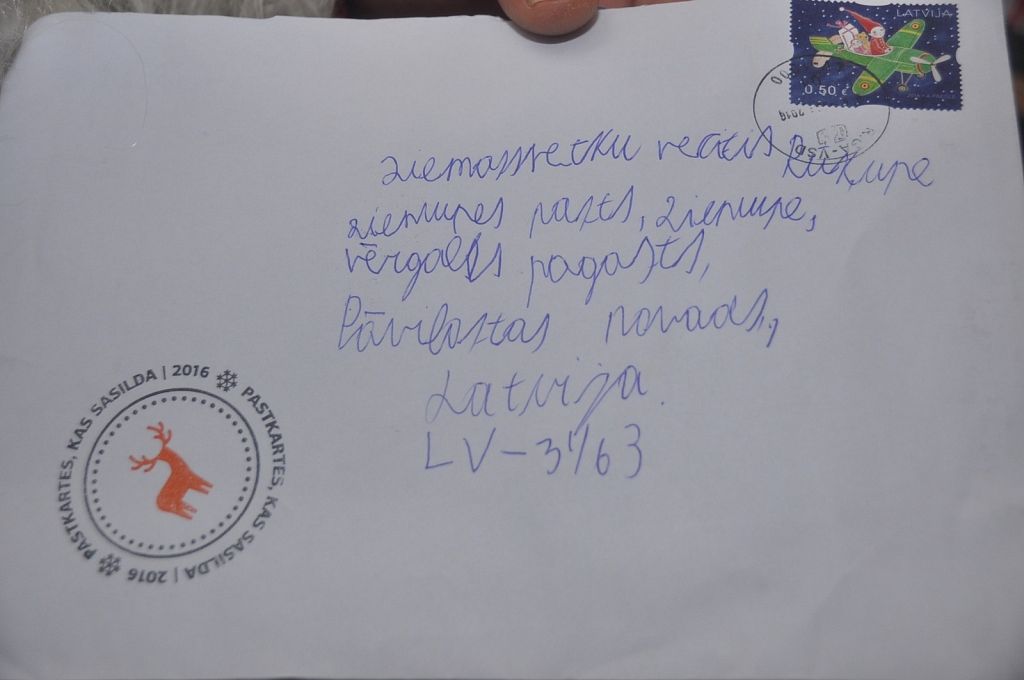 LATVIJA
0.50 €
RĪGA-VSD
2016
ziemassvetku vecītis Rūķupe
ziemupes pasts, ziemupe,
vērgales pagasts,
Pāvilostas novads,
Latvija.
LV-3463
PASTKARTES, KAS SASILDA | 2016
PASTKARTES, KAS SASILDA | 2016